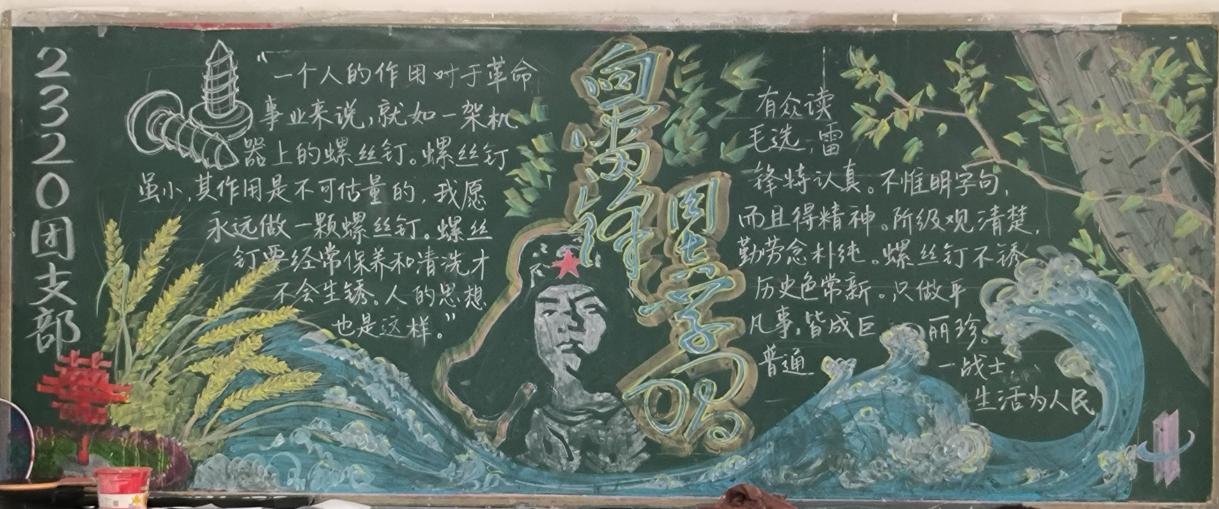 2320团支部
“一个人的作用对于革命
事业来说,就如一架机
器上的螺丝钉。螺丝钉
虽小,其作用是不可估量的,我愿
永远做一颗螺丝钉。螺丝
钉要经常保养和清洗才
不会生锈。人的思想
也是这样。”
向雷锋
同志学习
有众读
毛选,雷
锋特认真。不惟明字句,
而且得精神。阶级观清楚,
勤劳念朴纯。螺丝钉不锈
历史色常新。只做平
凡事,皆成巨丽珍。
普通一战士,
生活为人民